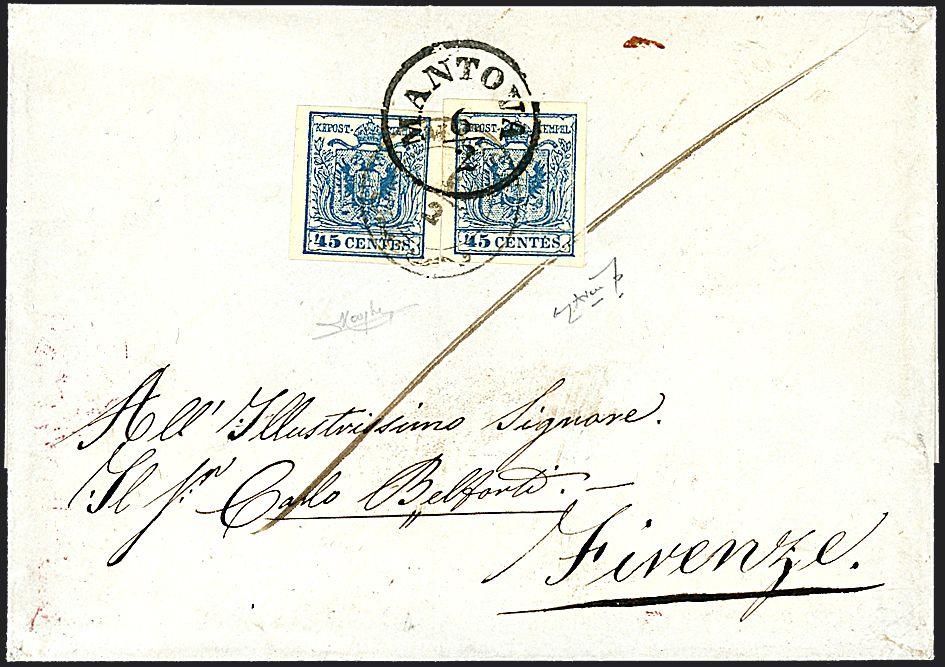 MANTOVA
6
2
KKPOST- STEMPEL
KKPOST- STEMPEL
45 CENTES.
45 CENTES.
All' Illustrissimo Signore.
Il S:r Carlo Belforti. —
Firenze.